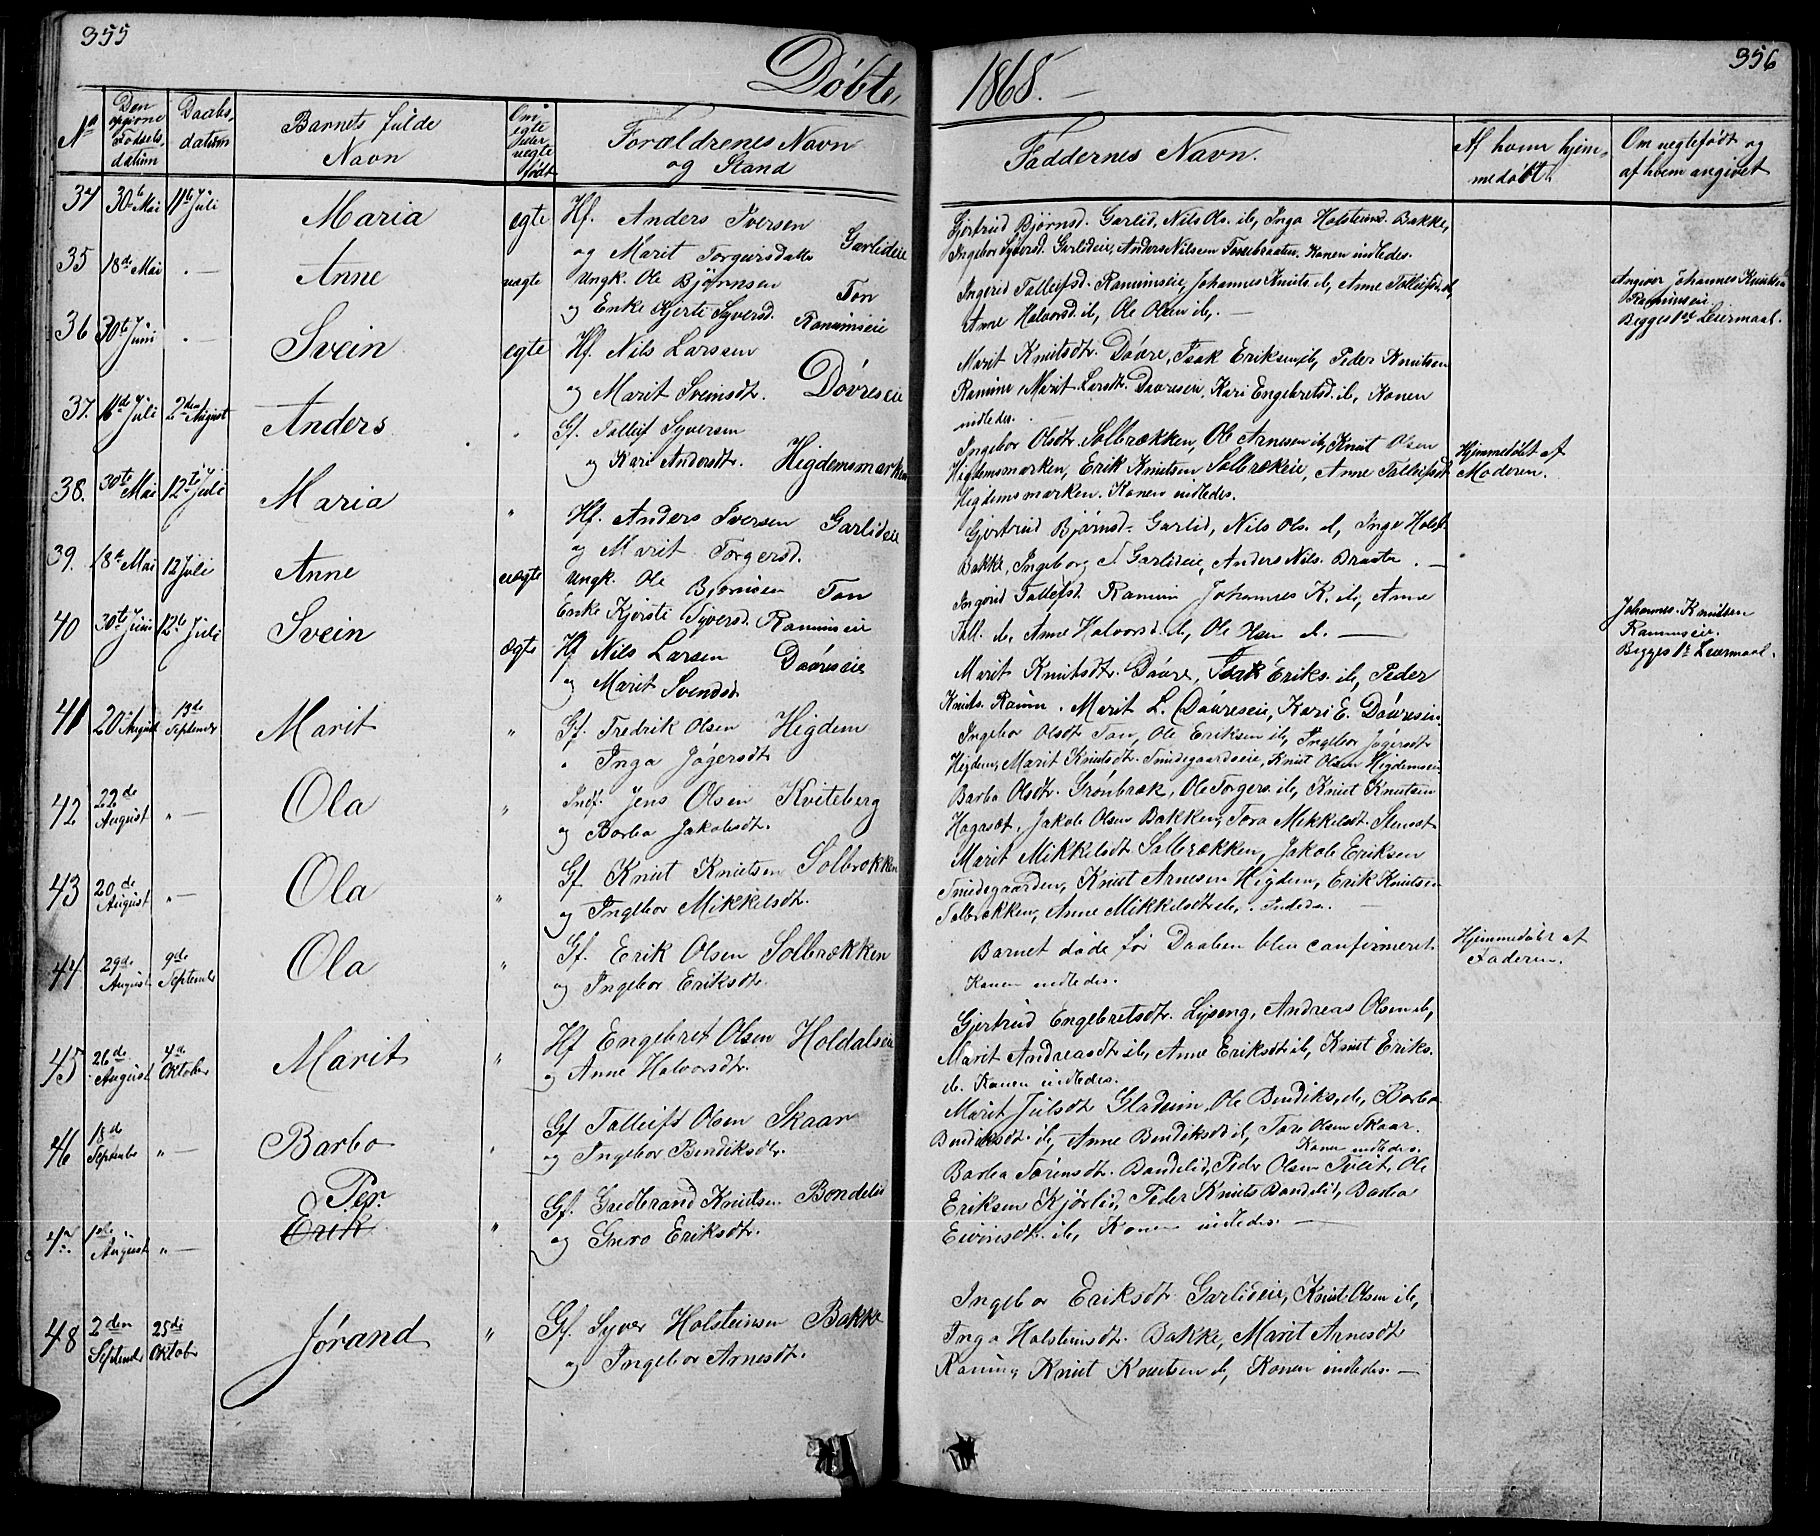 355
Døbte,
1868. —
356
No
Den opgivne Fødsels datum
Daabs datum
Barnets fulde Navn
Om egte eller uegte født
Forældrenes Navn og Stand
Faddernes Navn.
Af hvem hjemmedøbt
Om uegtefødt og af hvem angivet
34 30te Mai 11te Juli Maria egte Hf. Anders Iversen
og Marit Torgersdatter Garlideie
Gjertrud Bjørnsd. Garlid, Nils Ols. ib, Inga Holsteinsd. Bakke,
Ingebor Syversd. Garlideie, Anders Nilsen Konen indledes.
35 18de Mai " — Anne uegte Ungk. Ole Bjørnsen Ton
og Enke Kjerti Syversd. Ranumseie
Ingerid Tolleifsd. Ranumseie, Johannes Knuts. ib, Anne Tolleifsd. ib,
Anne Halvorsd. ib, Ole Olsen ib, —
Angiver Johannes Knutsen
Ranumseie
Begges 1ste Leiermaal.
36 30te Juni " — Svein egte Hf. Nils Larsen
og Marit Sveinsdt. Dovreseie
Marit Knutsdt. Dovre, Isak Eriksen ib, Peder Knutsen
Ranum, Marit Larsdt. Dovreseie, Kari Engebretsd. ib, Konen
indledes.
37. 16de Juli 2den August Anders " Gf. Tolleif Syversen
og Kari Andersdt. Higdemsmarken
Ingebor Olsdt. Solbrækken, Ole Arnesen ib, Knut Olsen
Higdemsmorken, Erik Knutsen Solbrækeie, Anne Tolleifsdt.
Higdemsmarken. Konen indledes.
Hjemmedøbt af
Moderen.
38. 30te Mai 12te Juli Maria " Hf. Anders Iversen Garlideie
og Marit Torgersd.
Gjertrud Bjørnsd. Garlid, Nils Ols. ib, Inga Holst.
Bakke, Ingeborg S. Garlideie, Anders Nils. Braate. —
39. 18de Mai 12 Juli Anne uegte Ungk. Ole Bjørnsen Ton
Enke Kjersti Syversd. Ranumseie
Ingerid Tollefsd. Ranum Johannes K. ib, Anne
Toll. ib, Anne Halvorsd. ib, Ole ib. —
Johannes Knutsen
Ranumseie.
Begges 1ste Leiermaal.
40 30te Juni 12te Juli Svein ægte Hf Nils Larsen Dovreseie
og Marit Svendsd.
Marit Knutsdt. Dovre, Isak Eriks. ib, Peder
Knuts. Ranum. Marit L. Dovreseie, Kari E. Dovreseie
41 20 August 13de September Marit " Gf. Fredrik Olsen Higdem
" Inga Jøgersdt.
Ingebor Olsdt. Ton, Ole Eriksen ib, Ingebor Jøgersdt.
Higdem, Marit Knutsdt. Snidegaardseie, Knut Olsen Higdemseie
42 22de August " — Ola " Indf. Jens Olsen Kviteberg
og Barbo Jakobsdt.
Barbo Olsdt. Grønbræk, Ole Torgers. ib, Knut Knutsen
Hagasæt, Jakob Olsen Bakken, Tora Mikkelsdt. Stensæt
43 20de August " — Ola " Gf. Knut Knutsen Solbrækken
og Ingebor Mikkelsdt.
Marit Mikkelsdt. Solbrækken, Jakob Eriksen
Snidegaarden, Knut Arnesen Higdem, Erik Knutsen
Solbrækken, Anne Mikkelsdt. ib, . Indledes. —
44 29de August 9de September Ola " Gf. Erik Olsen Solbrækken
og Ingebor Eriksdt.
Barnet døde før Daaben blev confirmeret.
Konen indledes.
Hjemmedøbt af
Faderen.
45 26de August 4de Oktober Marit " Hf Engebret Olsen Holdalseie
og Anne Halvorsdt.
Gjertrud Engebretsdt. Lyseng, Andreas Olsen ib,
Marit Andreasdt. ib, Anne Eriksdt ib, Knut Eriks.
ib. Konen indledes.
46 18de September " — Barbo " Gf Tolleif Olsen Skaar
og Ingebor Bendiksdt.
Marit Juelsdt. Gladeim, Ole Bendiks. ib, Barbo
Bendiksdt. ib, Anne Bendiksdt ib, Tore Olsen Skaar.
Konen indledes.
47. 1ste August " — Per. Erik " Gf. Gudbrand Knutsen Bondelid
og Guro Eriksdt.
Barbo Sørensdt. Bondelid, Peder Olsen Tveit, Ole
Eriksen Kjørlid, Peder Knuts. Bondelid, Barbo
Eivindsdt. ib, Konen indledes. —
48 2den September 25de Oktob. Jørand " Gf. Syver Holsteinsen Bakke
og Ingebor Arnesdt.
Ingebor Eriksdt. Garlideie, Knut Olsen ib,
Inga Holsteinsdt. Bakke, Marit Arnesdt.
Raning, Knut Knutsen ib, Konen indledes. —